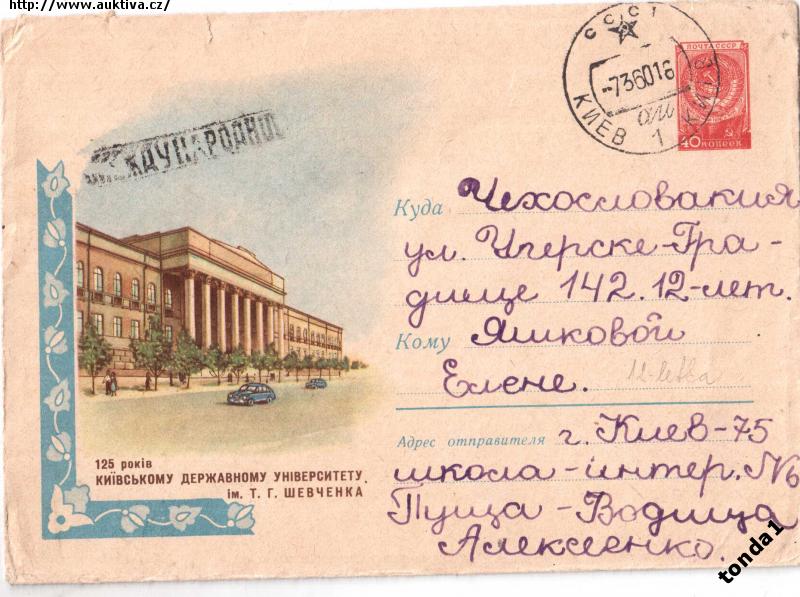 http://www.auktiva.cz/
СССР
-736016
КИЕВ 1
ПОЧТА СССР
40 КОПЕЕК
МЕЖДУНАРОДНОЕ
Куда Чехословакия
ул. Угерске-Гра-
дище 142. 12-лет.
Кому Яшковой
Елене.
12-letka
Адрес отправителя г. Киев-75
школа-интер. №6
Пуща-Водица
Алексеенко.
125 років
КИЇВСЬКОМУ ДЕРЖАВНОМУ УНІВЕРСИТЕТУ
ім. Т. Г. ШЕВЧЕНКА
tonda1